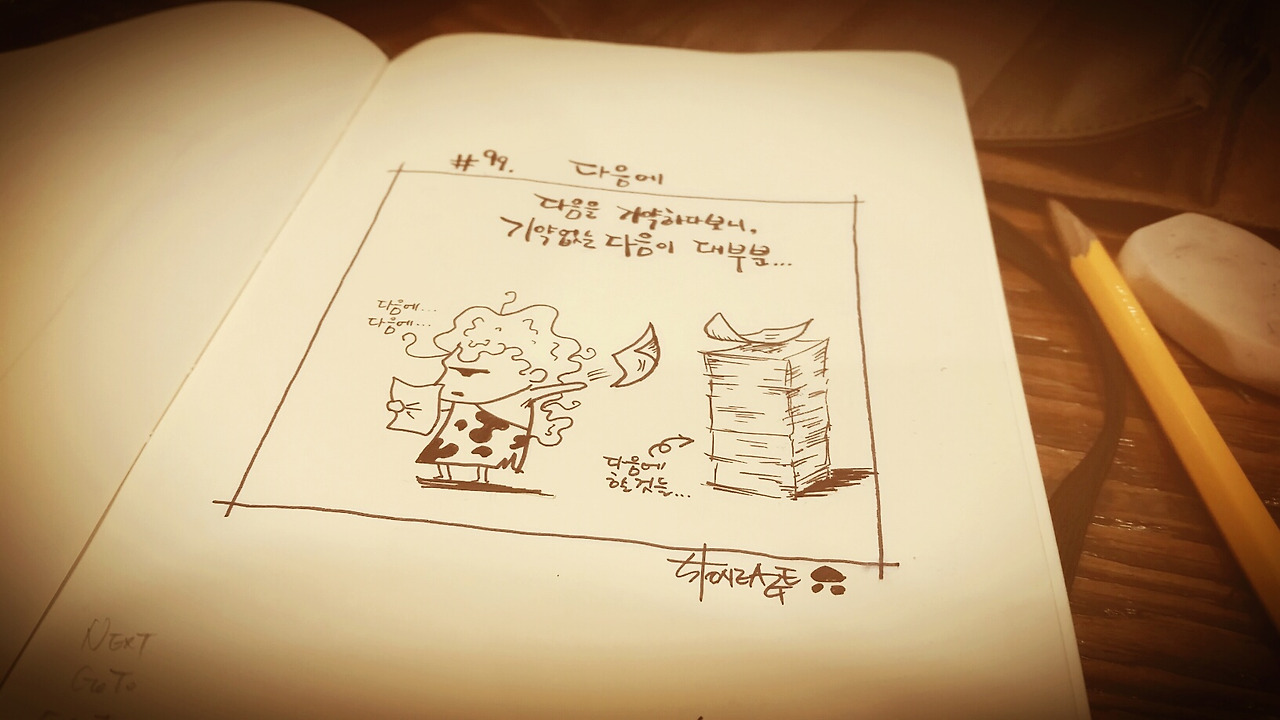 #99. 다음에
다음을 기약하다보니,
기약없는 다음이 대부분...
다음에...
다음에...
다음에
할것들...
NEXT
GoTo